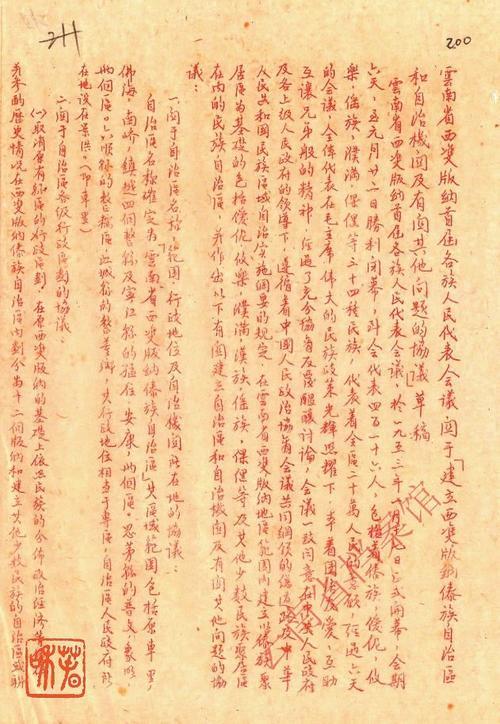 雲南省西雙版納首屆各族人民代表会議,関于「建立西雙版納傣族自治區
和自治機関及有関其他問題的協議」草稿
雲南省西雙版納首屆各族人民代表会議,於一九五三年一月十七日正式開幕,会期
六天,至元月廿二日勝利閉幕,到会代表四百一十六人,包括着傣族,僾伲,攸
樂,傜族,濮滿,倮倮等三十四種民族,代表着全區二十萬人民的意願,經過六天
的会議,全体代表在毛主席,偉大的民族政策光輝照耀下,本着團結友愛,互助
互讓兄弟般的精神,經過了充分協商反覆醖釀討論,会議一致同意在中央人民政府
及各上級人民政府的領導下,遵循着中國人民政治協商会議共同綱領的民族政策及中華
人民共和國民族區域自治实施綱要的規定,在雲南省西雙版納地區範圍內建立以傣族聚
居區为基礎的包括僾伲,攸樂,濮滿,漢族,傜族,倮倮等及其他少数民族聚居區
在內的民族自治區,並作出以下有関建立自治區和自治機関及有関其他問題的協
議:
一、関于自治區名称,範圍,行政地位及自治機関所在地的協議:
自治區名称確定为「雲南省西雙版納傣族自治區」其區域範圍包括原車里,
佛海,南嶠,鎮越四個整縣及寧江縣的猛往,安康,兩個區。思茅縣的普文,象明,
兩個區。六順縣的整糯區,江城縣的整董鄉,其行政地位相当于專區,自治區人民政府所
在地設在景洪。(即車里)
二、関于自治區各級行政區劃的協議:
(一)取消原有縣區的行政區劃,在原西雙版納的基礎上依照民族的分佈政治經済等
並参酌歷史情况在西雙版納傣族自治區內劃分为十二個版納和建立其他少数民族的自治區或聯
200